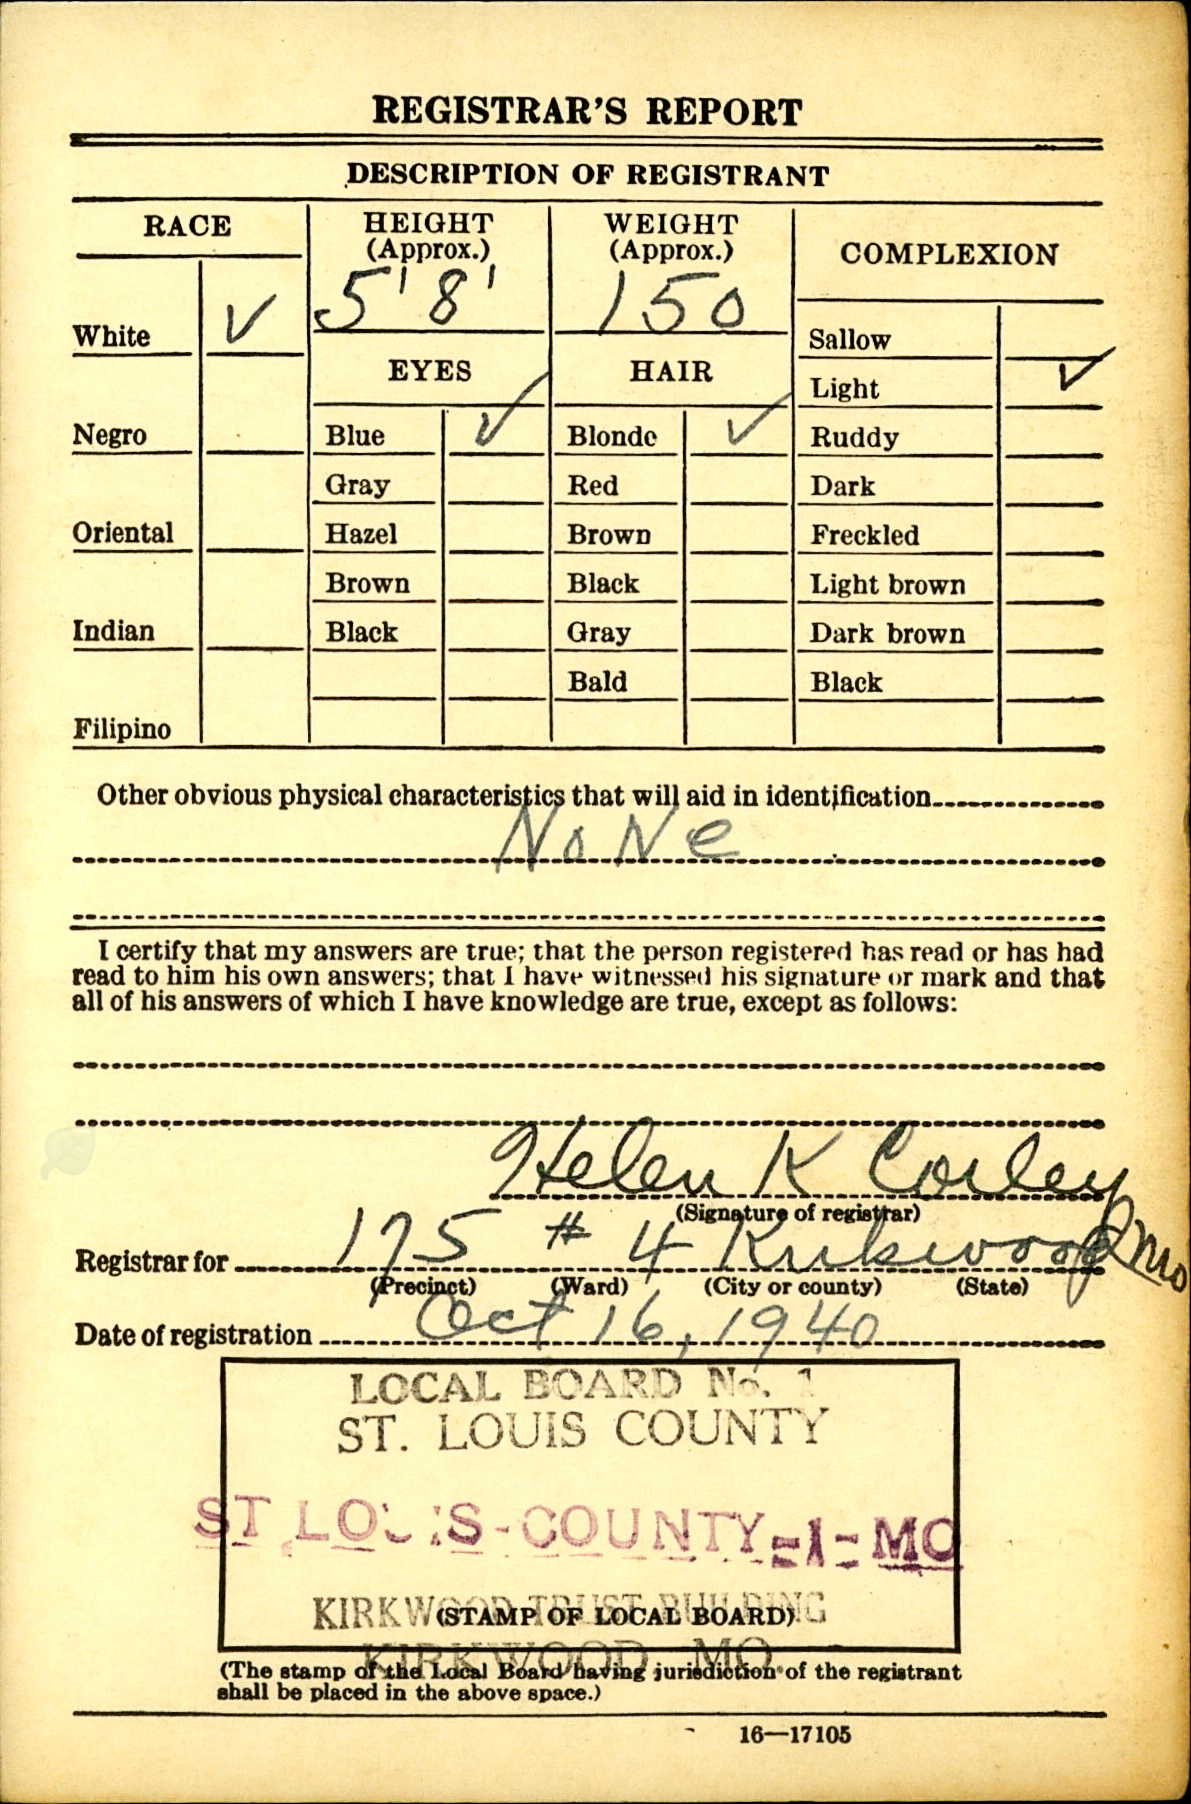 REGISTRAR'S REPORT
DESCRIPTION OF REGISTRANT
RACE
White ✓
Negro
Oriental
Indian
Filipino
HEIGHT
(Approx.)
5' 8'
WEIGHT
(Approx.)
150
COMPLEXION
EYES
Blue ✓
Gray
Hazel
Brown
Black
HAIR
Blonde ✓
Red
Brown
Black
Gray
Bald
Sallow
Light ✓
Ruddy
Dark
Freckled
Light brown
Dark brown
Black
Other obvious physical characteristics that will aid in identification
NoNe
I certify that my answers are true; that the person registered has read or has had
read to him his own answers; that I have witnessed his signature or mark and that
all of his answers of which I have knowledge are true, except as follows:
Helen K Corley
(Signature of registrar)
Registrar for 175 # 4 Kirkwood Mo
(Precinct) (Ward) (City or county) (State)
Date of registration Oct 16, 1940
LOCAL BOARD No. 1
ST. LOUIS COUNTY
ST LOUIS-COUNTY-1-MO
KIRKWOOD TRUST BUILDING
(STAMP OF LOCAL BOARD)
KIRKWOOD, MO.
(The stamp of the Local Board having jurisdiction of the registrant
shall be placed in the above space.)
16—17105